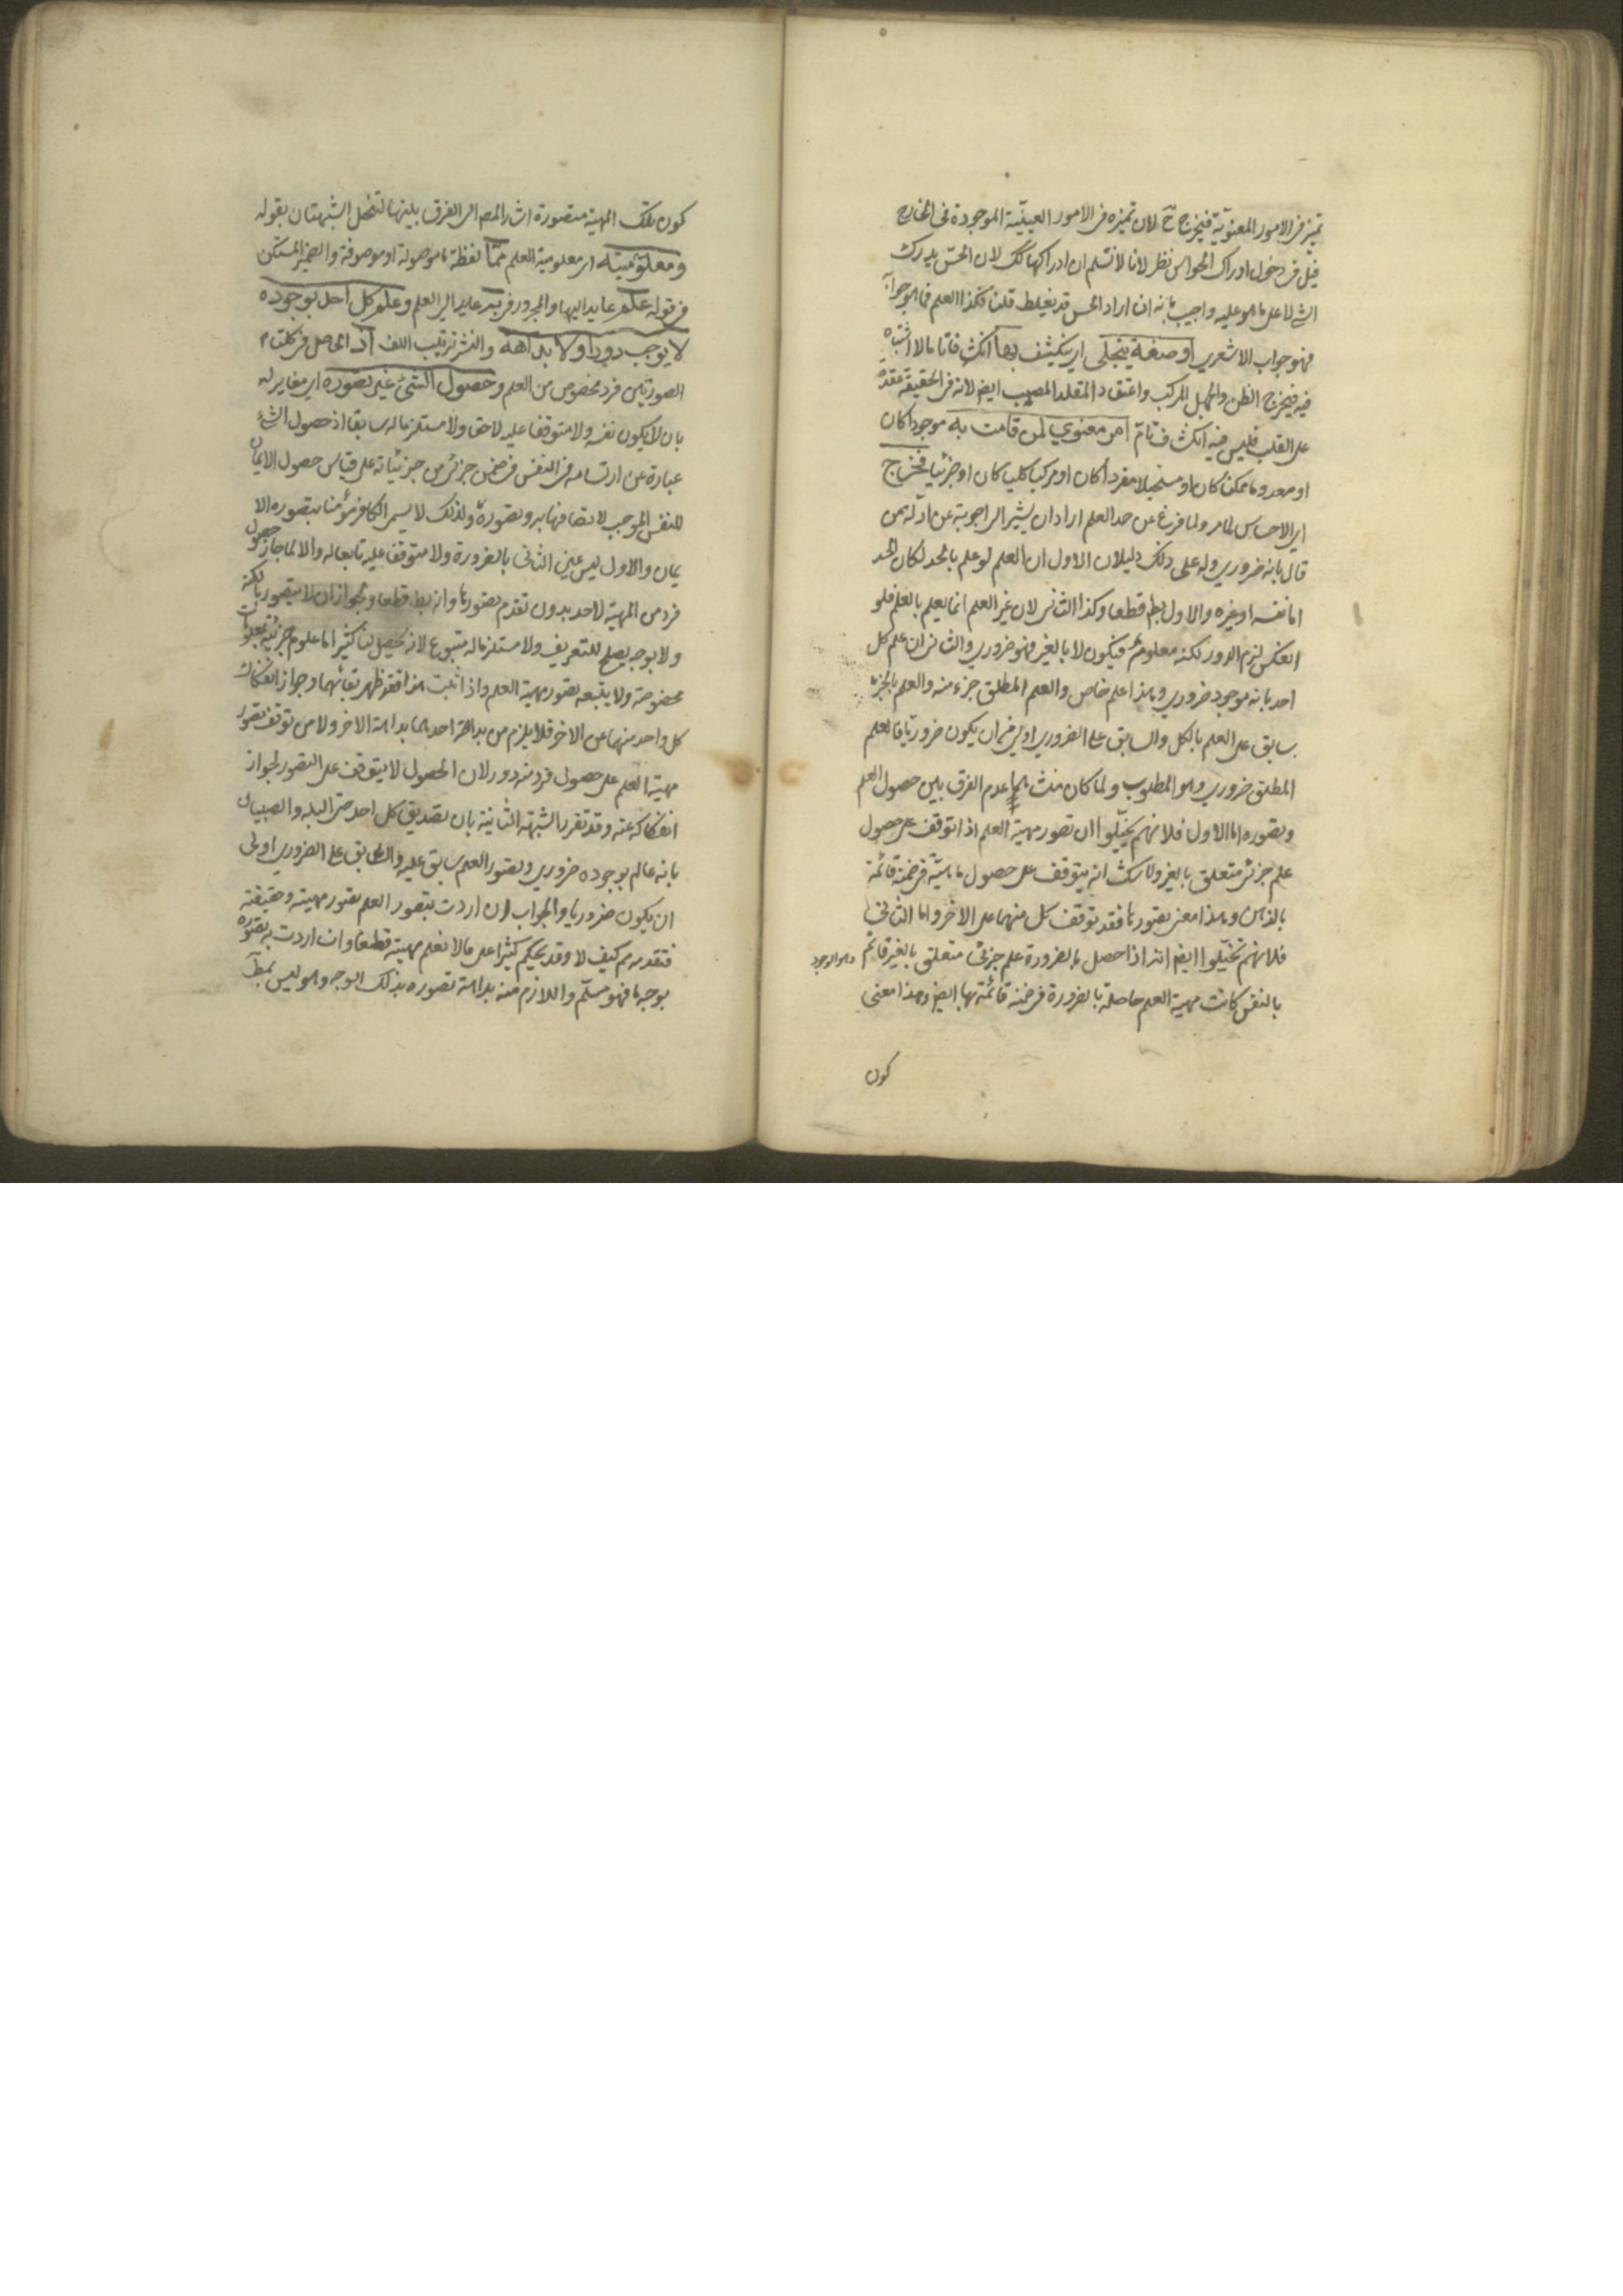 تميز في الامور المعنوية فيخرج ح لان تميزه في الامور العينية الموجودة في الخارج
قيل في دخول ادراك الحواس نظر لانا لا نسلم ان ادراكها كك لان الحس يدرك
الشئ لا على ما هو عليه واجيب بانه ان اراد الحس قد يغلط قلنا فكذا العلم فما هو جوابه
فهو جواب الاشعري او صفة يتجلى اي ينكشف بها انكشافا تاما لا اشتباه
فيه فيخرج الظن والجهل المركب واعتقاد المقلد المصيب ايضا لانه في الحقيقة عقدة
على القلب فليس فيه انكشاف تام امر معنوي لمن قامت به موجودا كان
او معدوما ممكنا كان او مستحيلا مفردا كان او مركبا كليا كان او جزئيا فخرج
اي الاحساس لما مر ولما فرغ عن حد العلم اراد ان يشير الى اجوبة عن ادلة من
قال بانه ضروري وله على ذلك دليلان الاول ان العلم لو علم بالحد لكان الحد
اما نفسه او غيره والاول بط قطعا وكذا الثاني لان غير العلم انما يعلم بالعلم فلو
انعكس لزم الدور لكنه معلوم فيكون لا بالغير فهو ضروري والثاني ان علم كل
احد بانه موجود ضروري وهذا علم خاص والعلم المطلق جزء منه والعلم بالجزء
سابق على العلم بالكل والسابق على الضروري اولى في ان يكون ضروريا فالعلم
المطلق ضروري وهو المطلوب ولما كان منشأهما عدم الفرق بين حصول العلم
وتصوره اما الاول فلانهم تخيلوا ان تصور مهية العلم اذا توقف على حصول
علم جزئي متعلق بالغير ولا شك انه يتوقف على حصول ماهيته في ضمنه قائمة
بالذهن وهذا معنى تصورها فقد توقف كل منهما على الاخر واما الثاني
فلانهم تخيلوا ايضا انه اذا حصل بالضرورة علم جزئي متعلق بالغير قائم وهو الوجود
بالنفس كانت مهية العلم حاصلة بالضرورة في ضمنه قائمة بها ايضا وهذا معنى
كون
كون تلك المهية متصورة اشار المص الى الفرق بينهما لتنحل الشبهتان بقوله
ومعلوميته اي معلومية العلم مما لفظة ما موصولة او موصوفة والضمير المستكن
في قوله علم عايد اليها والمجرور في به عايد الى العلم وعلم كل احد بوجوده
لا يوجب دورا ولا بداهة والنشر ترتيب اللف اذ الحاصل في كلتا
الصورتين فرد مخصوص من العلم وحصول الشئ غير تصوره اي مغاير له
بان لا يكون نفسه ولا متوقفا عليه لاحقا ولا مستلزما له سابقا اذ حصول الشئ
عبارة عن ارتسامه في النفس في ضمن جزئي من جزئياته على قياس حصول الايمان
للنفس الموجب لاتصافها به وتصوره ولذلك لا يسمى الكافر مؤمنا بتصوره الا
يمان والاول ليس عين الثاني بالضرورة ولا متوقفا عليه تابعا له والا لما جاز حصول
فرد من المهية لاحد بدون تقدم تصورها وانه بط قطعا ولجواز ان لا يتصور بالكنه
ولا بوجه يصلح للتعريف ولا مستلزما له متبوعا لانه يحصل لنا كثيرا ما علوم جزئية بمعلومات
مخصوصة ولا يتبعه تصور مهية العلم واذا ثبت هذا فقد ظهر تغايرهما وجواز انفكاك
كل واحد منهما عن الاخر فلا يلزم من بداهة احدهما بداهة الاخر ولا من توقف تصور
مهية العلم على حصول فرد منه دور لان الحصول لا يتوقف على التصور لجواز
انفكاكه عنه وقد تقرر الشبهة الثانية بان تصديق كل احد حتى البله والصبيان
بانه عالم بوجوده ضروري وتصور العلم سابق عليه والسابق على الضروري اولى
ان يكون ضروريا والجواب ان اردت بتصور العلم تصور مهيته وحقيقته
فتقدمه مم كيف لا وقد يحكم كثيرا على ما لا نعلم مهيته قطعا وان اردت به تصوره
بوجه ما فهو مسلم واللازم منه بداهة تصوره بذلك الوجه وهو ليس بمط